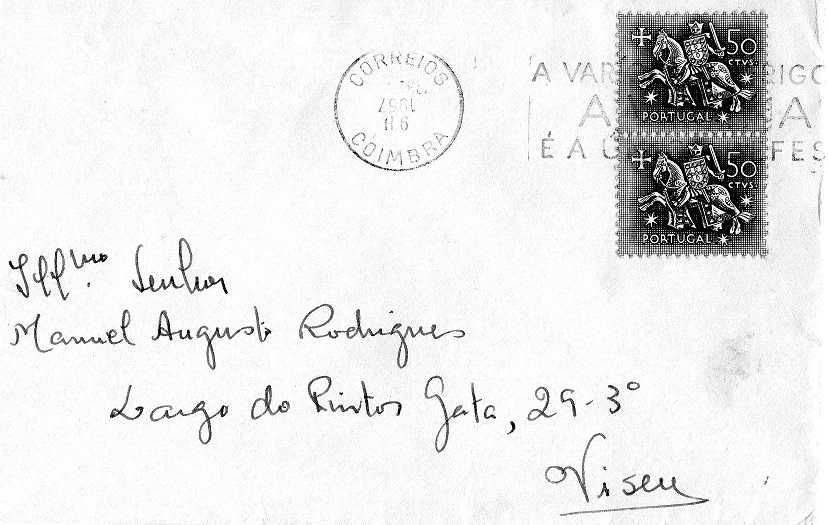 CORREIOS
1957
9 II
COIMBRA
A VAR
RIGO
A
A
É A Ú
FES
50
CTVS.
PORTUGAL
50
CTVS.
PORTUGAL
Illmo. Senhor
Manuel Augusto Rodrigues
Largo do Pintor Gata, 29-3°
Viseu